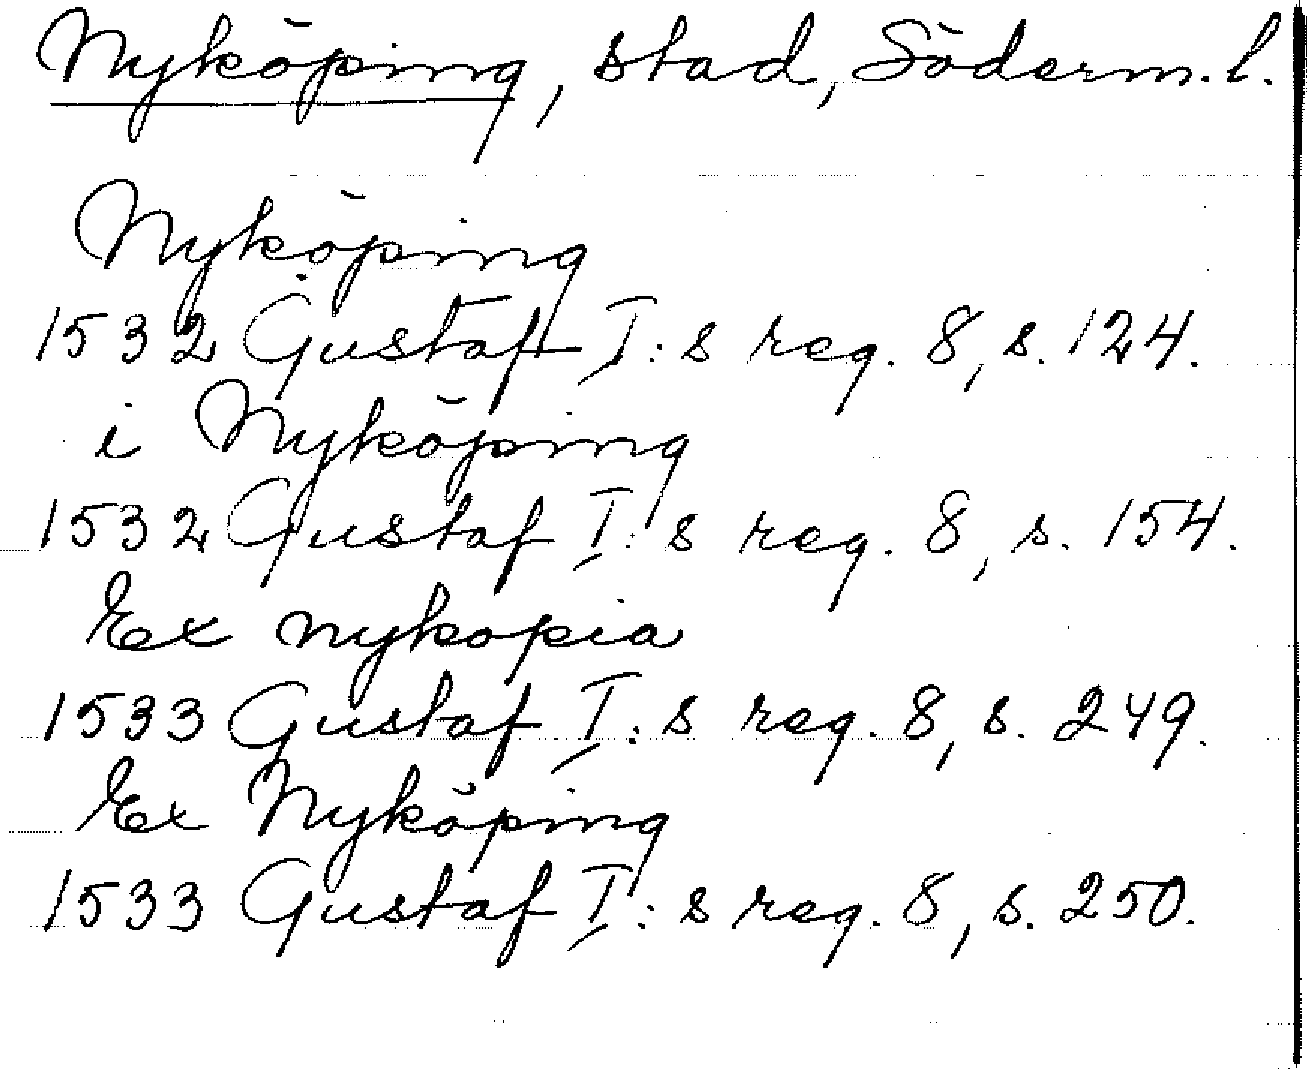 Nyköping, stad, Söderm. l.
Nyköping
1532 Gustaf I:s reg. 8, s. 124.
i Nyköping
1532 Gustaf I:s reg. 8, s. 154.
Ex nykopia
1533 Gustaf I:s reg. 8, s. 249.
Ex Nyköping
1533 Gustaf I:s reg. 8, s. 250.